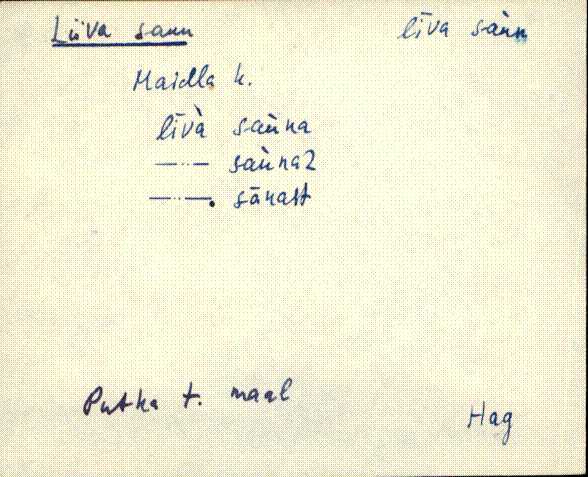 Liiva saun līva sàun
Maidla k.
līvà sàuna
—··— sàuna2
—··—. sānast
Putka t. maal
Hag